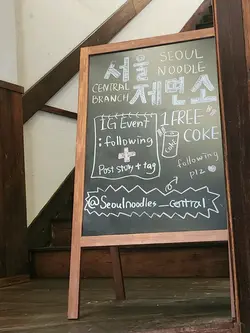 서울 SEOUL
NOODLE
CENTRAL
BRANCH 제면소
IG Event
: following
+
Post story + tag
1 FREE
COKE
Coke
following
plz
@Seoulnoodles_central